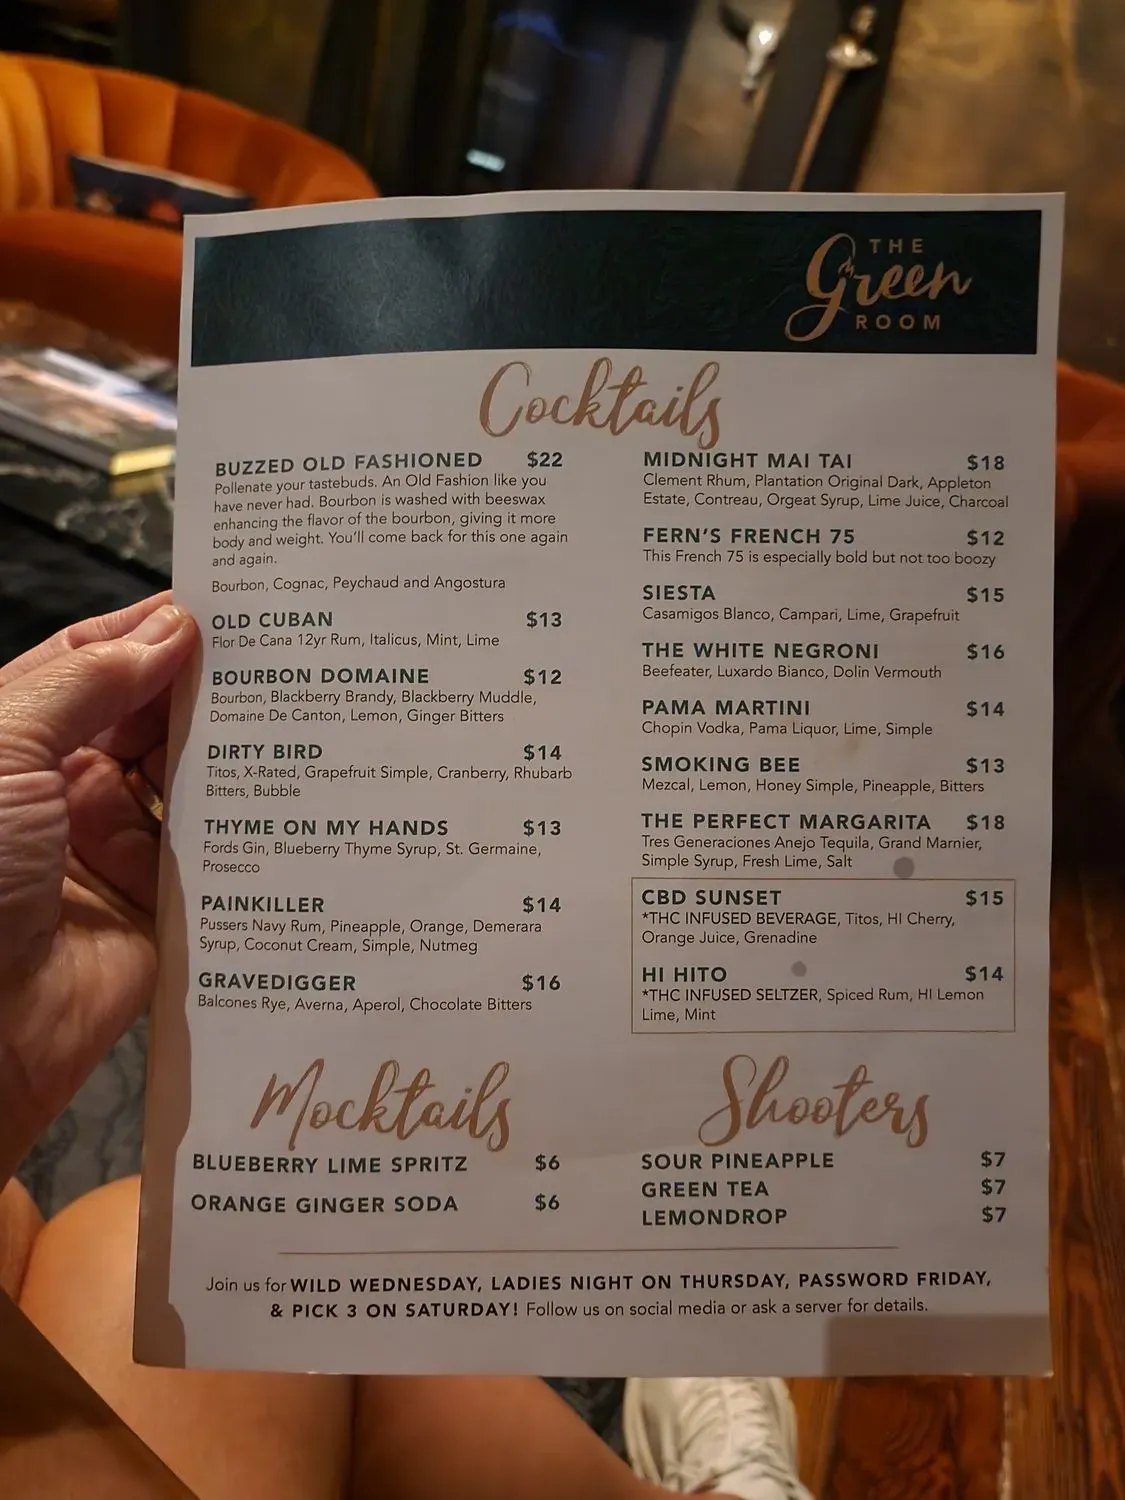 THE
Green
ROOM
Cocktails
BUZZED OLD FASHIONED $22
Pollenate your tastebuds. An Old Fashion like you
have never had. Bourbon is washed with beeswax
enhancing the flavor of the bourbon, giving it more
body and weight. You'll come back for this one again
and again.
Bourbon, Cognac, Peychaud and Angostura
OLD CUBAN $13
Flor De Cana 12yr Rum, Italicus, Mint, Lime
BOURBON DOMAINE $12
Bourbon, Blackberry Brandy, Blackberry Muddle,
Domaine De Canton, Lemon, Ginger Bitters
DIRTY BIRD $14
Titos, X-Rated, Grapefruit Simple, Cranberry, Rhubarb
Bitters, Bubble
THYME ON MY HANDS $13
Fords Gin, Blueberry Thyme Syrup, St. Germaine,
Prosecco
PAINKILLER $14
Pussers Navy Rum, Pineapple, Orange, Demerara
Syrup, Coconut Cream, Simple, Nutmeg
GRAVEDIGGER $16
Balcones Rye, Averna, Aperol, Chocolate Bitters
MIDNIGHT MAI TAI $18
Clement Rhum, Plantation Original Dark, Appleton
Estate, Contreau, Orgeat Syrup, Lime Juice, Charcoal
FERN'S FRENCH 75 $12
This French 75 is especially bold but not too boozy
SIESTA $15
Casamigos Blanco, Campari, Lime, Grapefruit
THE WHITE NEGRONI $16
Beefeater, Luxardo Bianco, Dolin Vermouth
PAMA MARTINI $14
Chopin Vodka, Pama Liquor, Lime, Simple
SMOKING BEE $13
Mezcal, Lemon, Honey Simple, Pineapple, Bitters
THE PERFECT MARGARITA $18
Tres Generaciones Anejo Tequila, Grand Marnier,
Simple Syrup, Fresh Lime, Salt
CBD SUNSET $15
*THC INFUSED BEVERAGE, Titos, HI Cherry,
Orange Juice, Grenadine
HI HITO $14
*THC INFUSED SELTZER, Spiced Rum, HI Lemon
Lime, Mint
Mocktails
BLUEBERRY LIME SPRITZ $6
ORANGE GINGER SODA $6
Shooters
SOUR PINEAPPLE $7
GREEN TEA $7
LEMONDROP $7
Join us for WILD WEDNESDAY, LADIES NIGHT ON THURSDAY, PASSWORD FRIDAY,
& PICK 3 ON SATURDAY! Follow us on social media or ask a server for details.